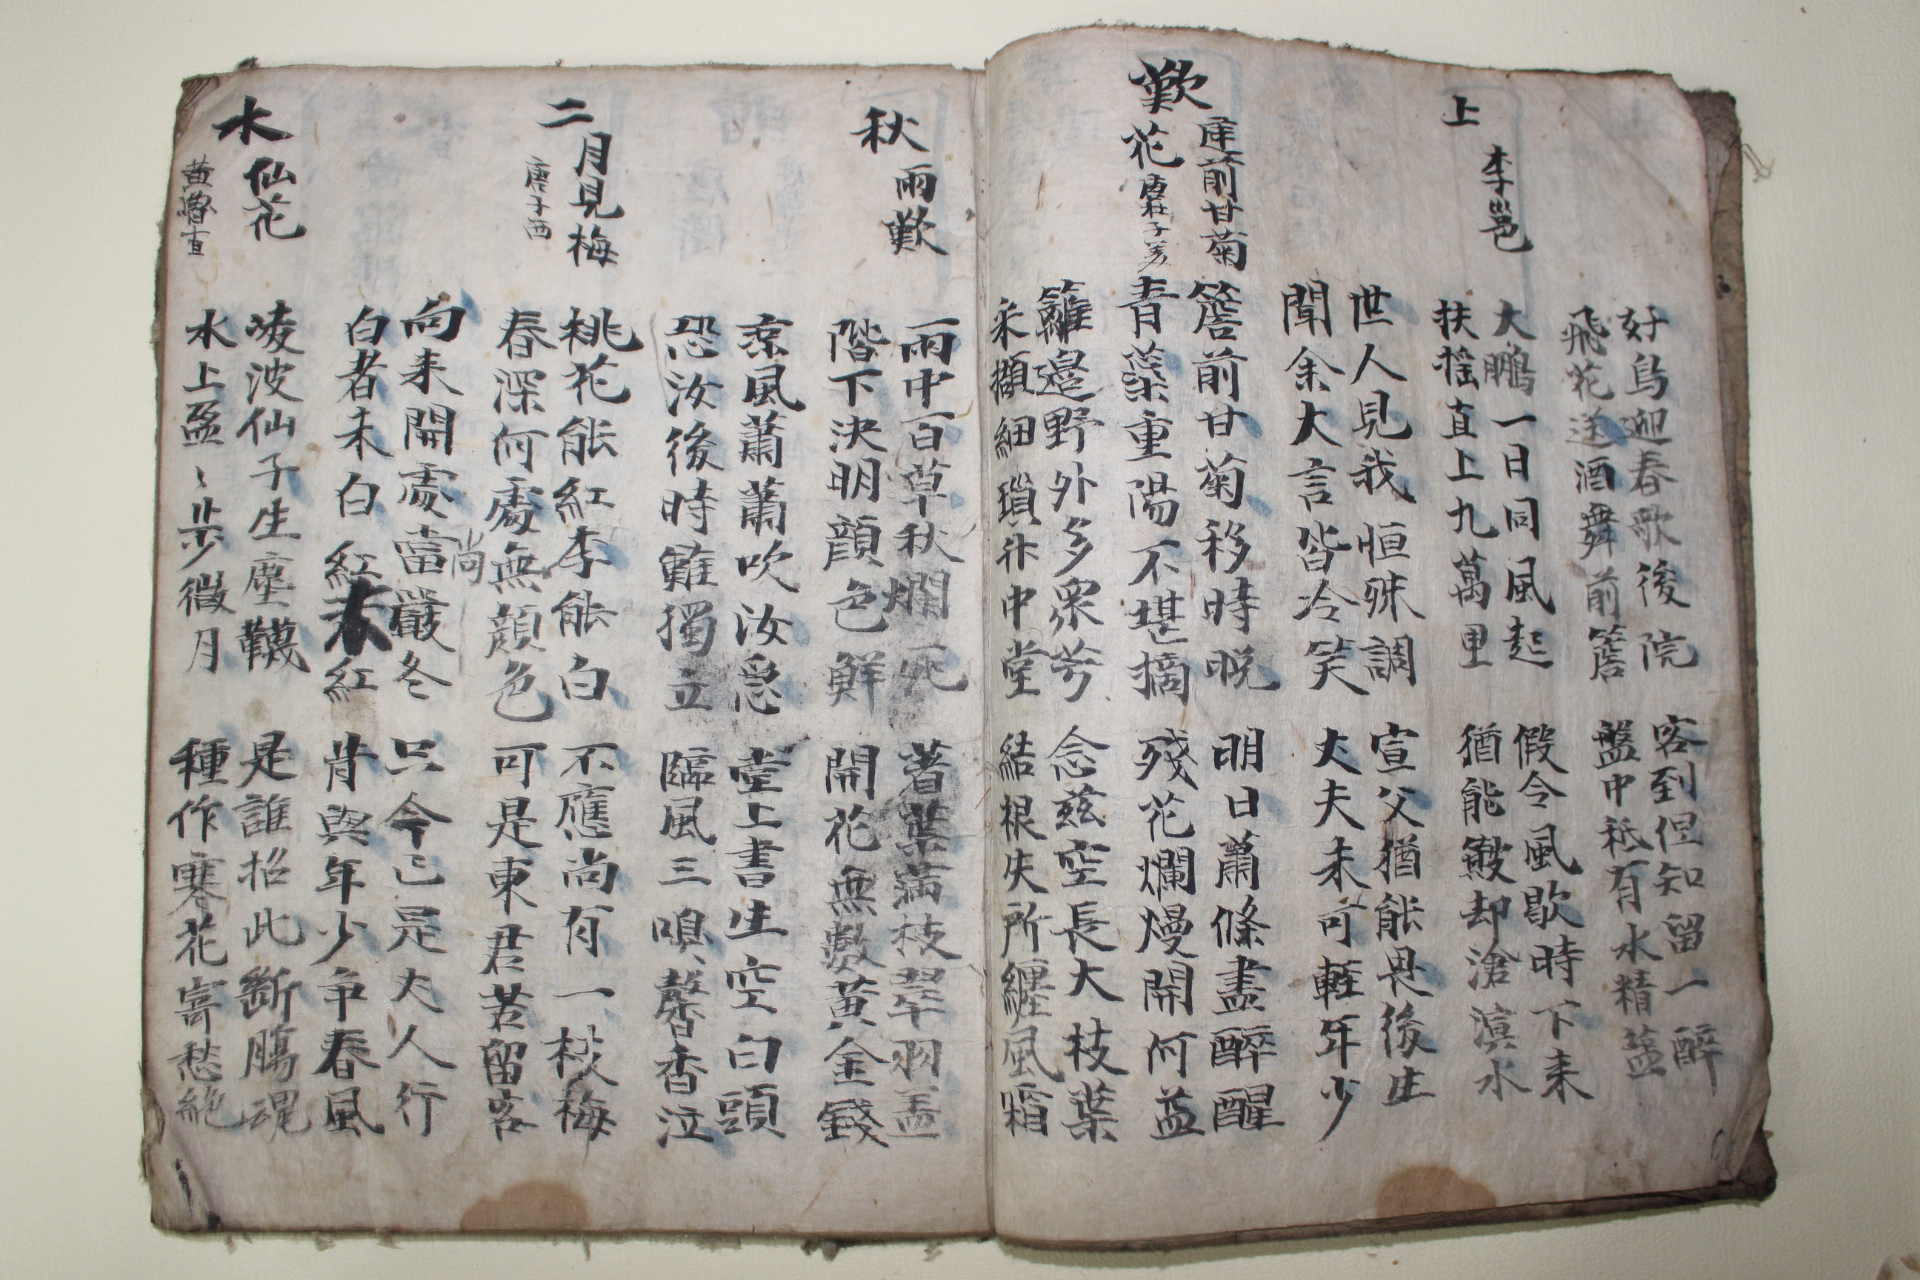 好鳥迎春歌後院
客到但知留一醉
飛花送酒舞前簷
盤中祗有水精盐
上李邕
大鵬一日同風起
假令風歇時下来
扶搖直上九萬里
猶能皺却滄溟水
世人見我恒殊調
宣父猶能畏後生
聞余大言皆冷笑
丈夫未可輕年少
歎庭前甘菊花 唐杜子美
簷前甘菊移時晚
明日蕭條盡醉醒
青蘂重陽不堪摘
殘花爛熳開何益
籬邉野外多衆芳
念兹空長大枝葉
采擷細瑣升中堂
結根失所纏風霜
秋雨歎
雨中百草秋爛死
著葉滿枝翠羽盖
階下決明顔色鮮
開花無數黄金錢
凉風蕭蕭吹汝急
堂上書生空白頭
恐汝後時難獨立
臨風三嗅馨香泣
二月見梅 唐子西
桃花能紅李能白
不應尚有一枝梅
春深何處無顔色
可是東君苦留客
向来開處當嚴冬
尚
只今已是丈人行
白者未白紅未紅
肯與年少爭春風
水仙花 黄魯直
凌波仙子生塵韈
是誰招此斷腸魂
水上盈〻步微月
種作寒花寄愁絶